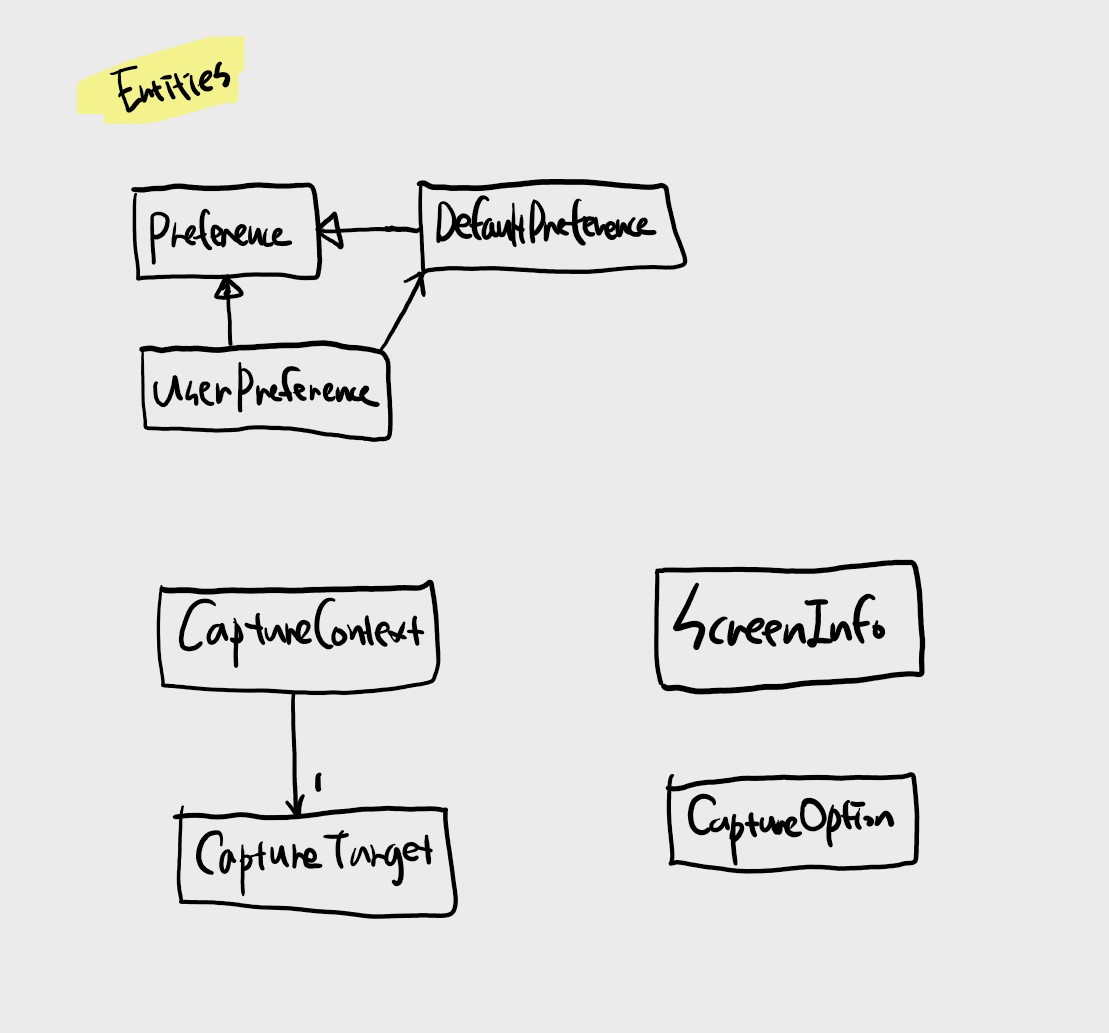 Entities
Preference
DefaultPreference
UserPreference
CaptureContext
ScreenInfo
1
CaptureTarget
CaptureOption